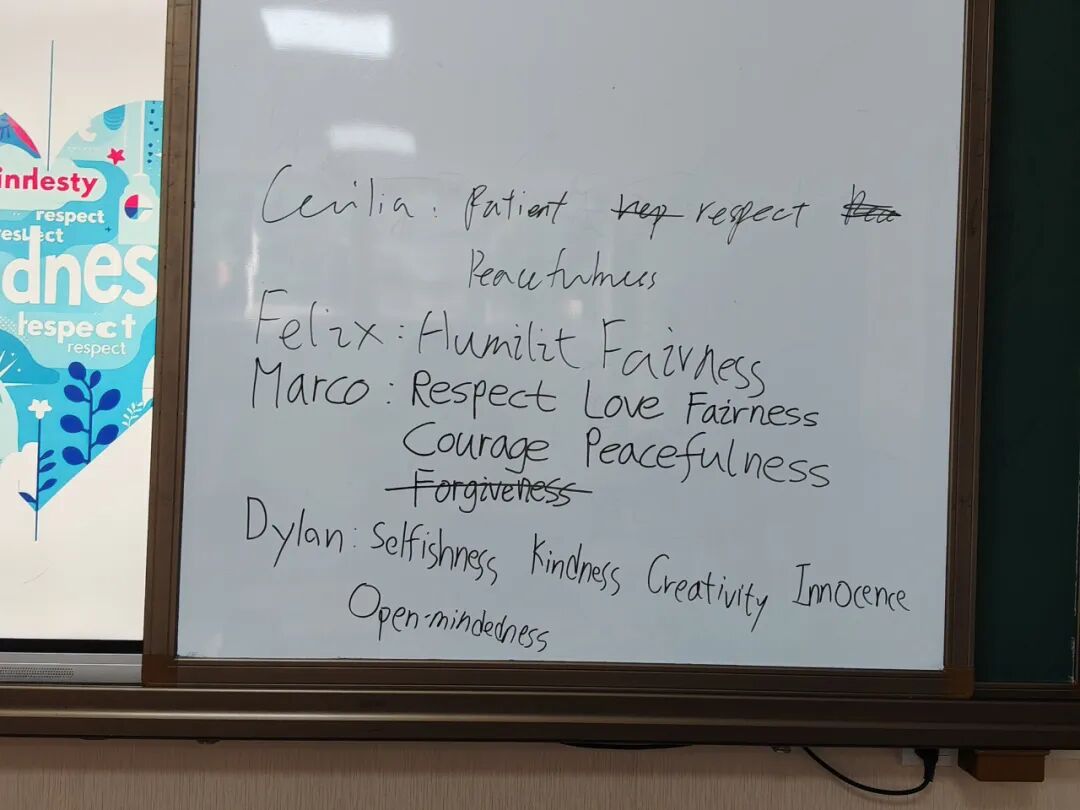 inndesty
respect
reslect
dnes
respect
respect
Cecilia: Patient rep respect
Peacefulness
Felix: Humilit Fairness
Marco: Respect Love Fairness
Courage Peacefulness
Forgiveness
Dylan: Selfishness Kindness Creativity Innocence
Open-mindedness